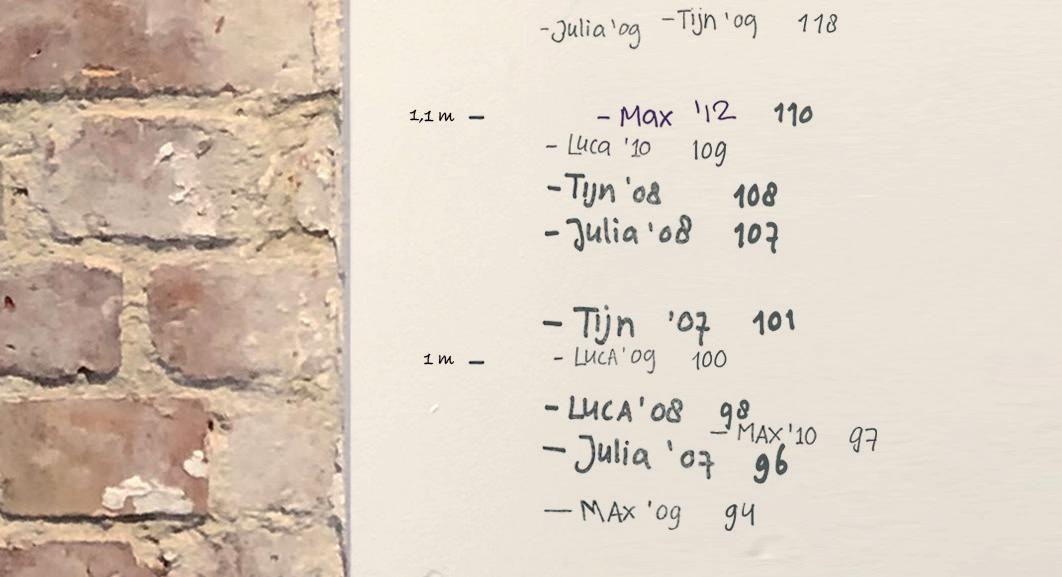 -Julia '09 -Tijn '09 118
1,1 m - - Max '12 110
- Luca '10 109
-Tijn '08 108
- Julia '08 107
- Tijn '07 101
1 m - - LUCA '09 100
- LUCA '08 98
- MAX '10 97
- Julia '07 96
- MAx '09 94